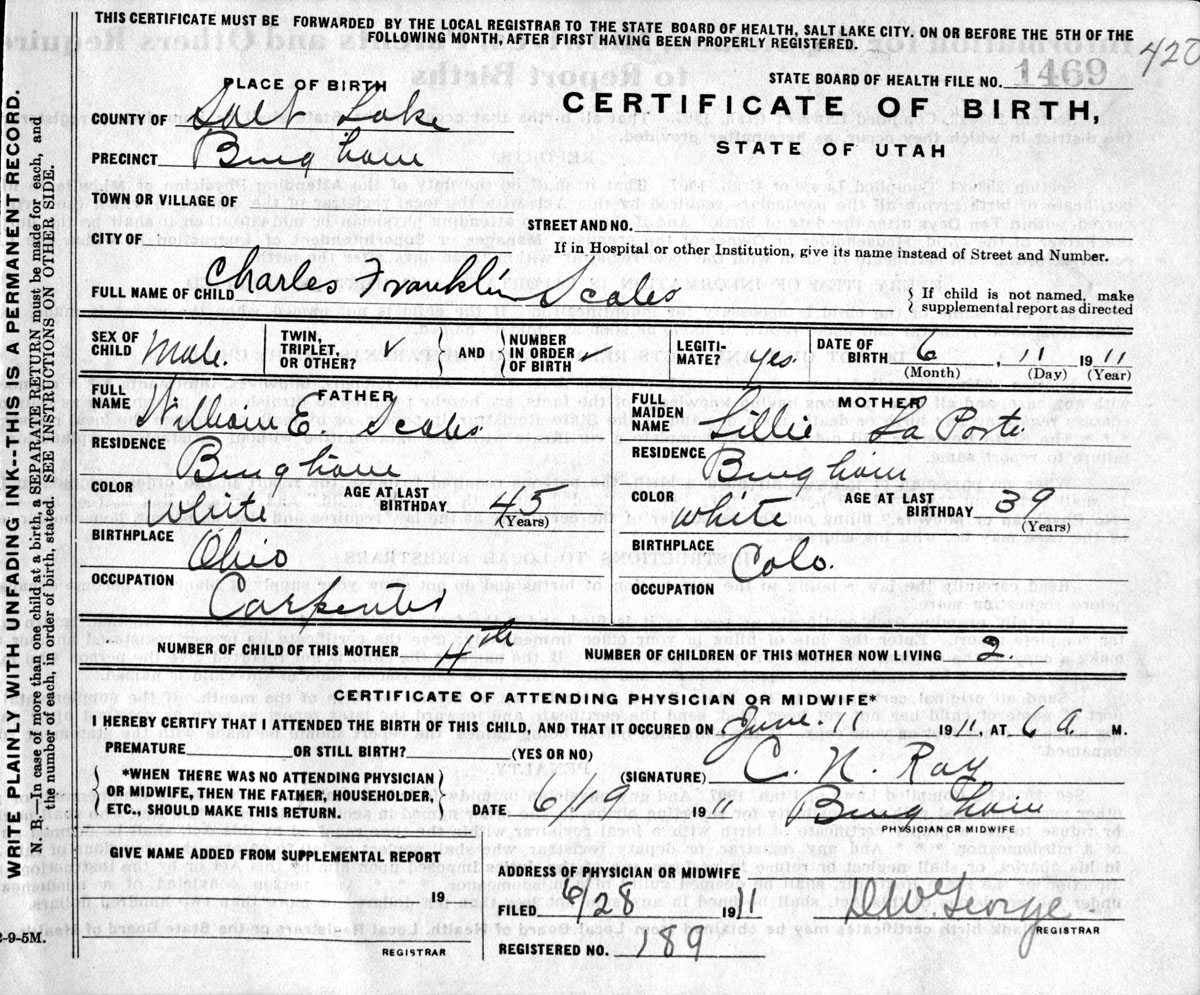 THIS CERTIFICATE MUST BE FORWARDED BY THE LOCAL REGISTRAR TO THE STATE BOARD OF HEALTH, SALT LAKE CITY. ON OR BEFORE THE 5TH OF THE
FOLLOWING MONTH, AFTER FIRST HAVING BEEN PROPERLY REGISTERED.
420
STATE BOARD OF HEALTH FILE NO. 1469
PLACE OF BIRTH
CERTIFICATE OF BIRTH,
STATE OF UTAH
COUNTY OF Salt Lake
PRECINCT Bingham
TOWN OR VILLAGE OF
STREET AND NO.
CITY OF
If in Hospital or other Institution, give its name instead of Street and Number.
FULL NAME OF CHILD Charles Franklin Scales
} If child is not named, make
supplemental report as directed
SEX OF CHILD Male.
TWIN, TRIPLET, OR OTHER?
} AND {
NUMBER IN ORDER OF BIRTH –
LEGITI-MATE? yes
DATE OF BIRTH 6, 11 1911
(Month) (Day) (Year)
FATHER
FULL NAME William E. Scales.
RESIDENCE Bingham
COLOR White
AGE AT LAST BIRTHDAY 45
(Years)
BIRTHPLACE Ohio
OCCUPATION Carpenter
MOTHER
FULL MAIDEN NAME Lillie La Porte
RESIDENCE Bingham
COLOR White
AGE AT LAST BIRTHDAY 39
(Years)
BIRTHPLACE Colo.
OCCUPATION
NUMBER OF CHILD OF THIS MOTHER 4th
NUMBER OF CHILDREN OF THIS MOTHER NOW LIVING 2.
CERTIFICATE OF ATTENDING PHYSICIAN OR MIDWIFE*
I HEREBY CERTIFY THAT I ATTENDED THE BIRTH OF THIS CHILD, AND THAT IT OCCURED ON June. 1911. AT 6 a. M.
PREMATURE OR STILL BIRTH? (YES OR NO)
*WHEN THERE WAS NO ATTENDING PHYSICIAN
OR MIDWIFE, THEN THE FATHER, HOUSEHOLDER,
ETC., SHOULD MAKE THIS RETURN.
(SIGNATURE) C. N. Ray
DATE 6/19 1911 Bingham
PHYSICIAN OR MIDWIFE
GIVE NAME ADDED FROM SUPPLEMENTAL REPORT
19
REGISTRAR
ADDRESS OF PHYSICIAN OR MIDWIFE
FILED 6/28 1911
REGISTERED NO. 189
George
REGISTRAR
WRITE PLAINLY WITH UNFADING INK--THIS IS A PERMANENT RECORD.
N. B.—In case of more than one child at a birth, a SEPARATE RETURN must be made for each, and
the number of each, in order of birth, stated. SEE INSTRUCTIONS ON OTHER SIDE.
2-9-5M.